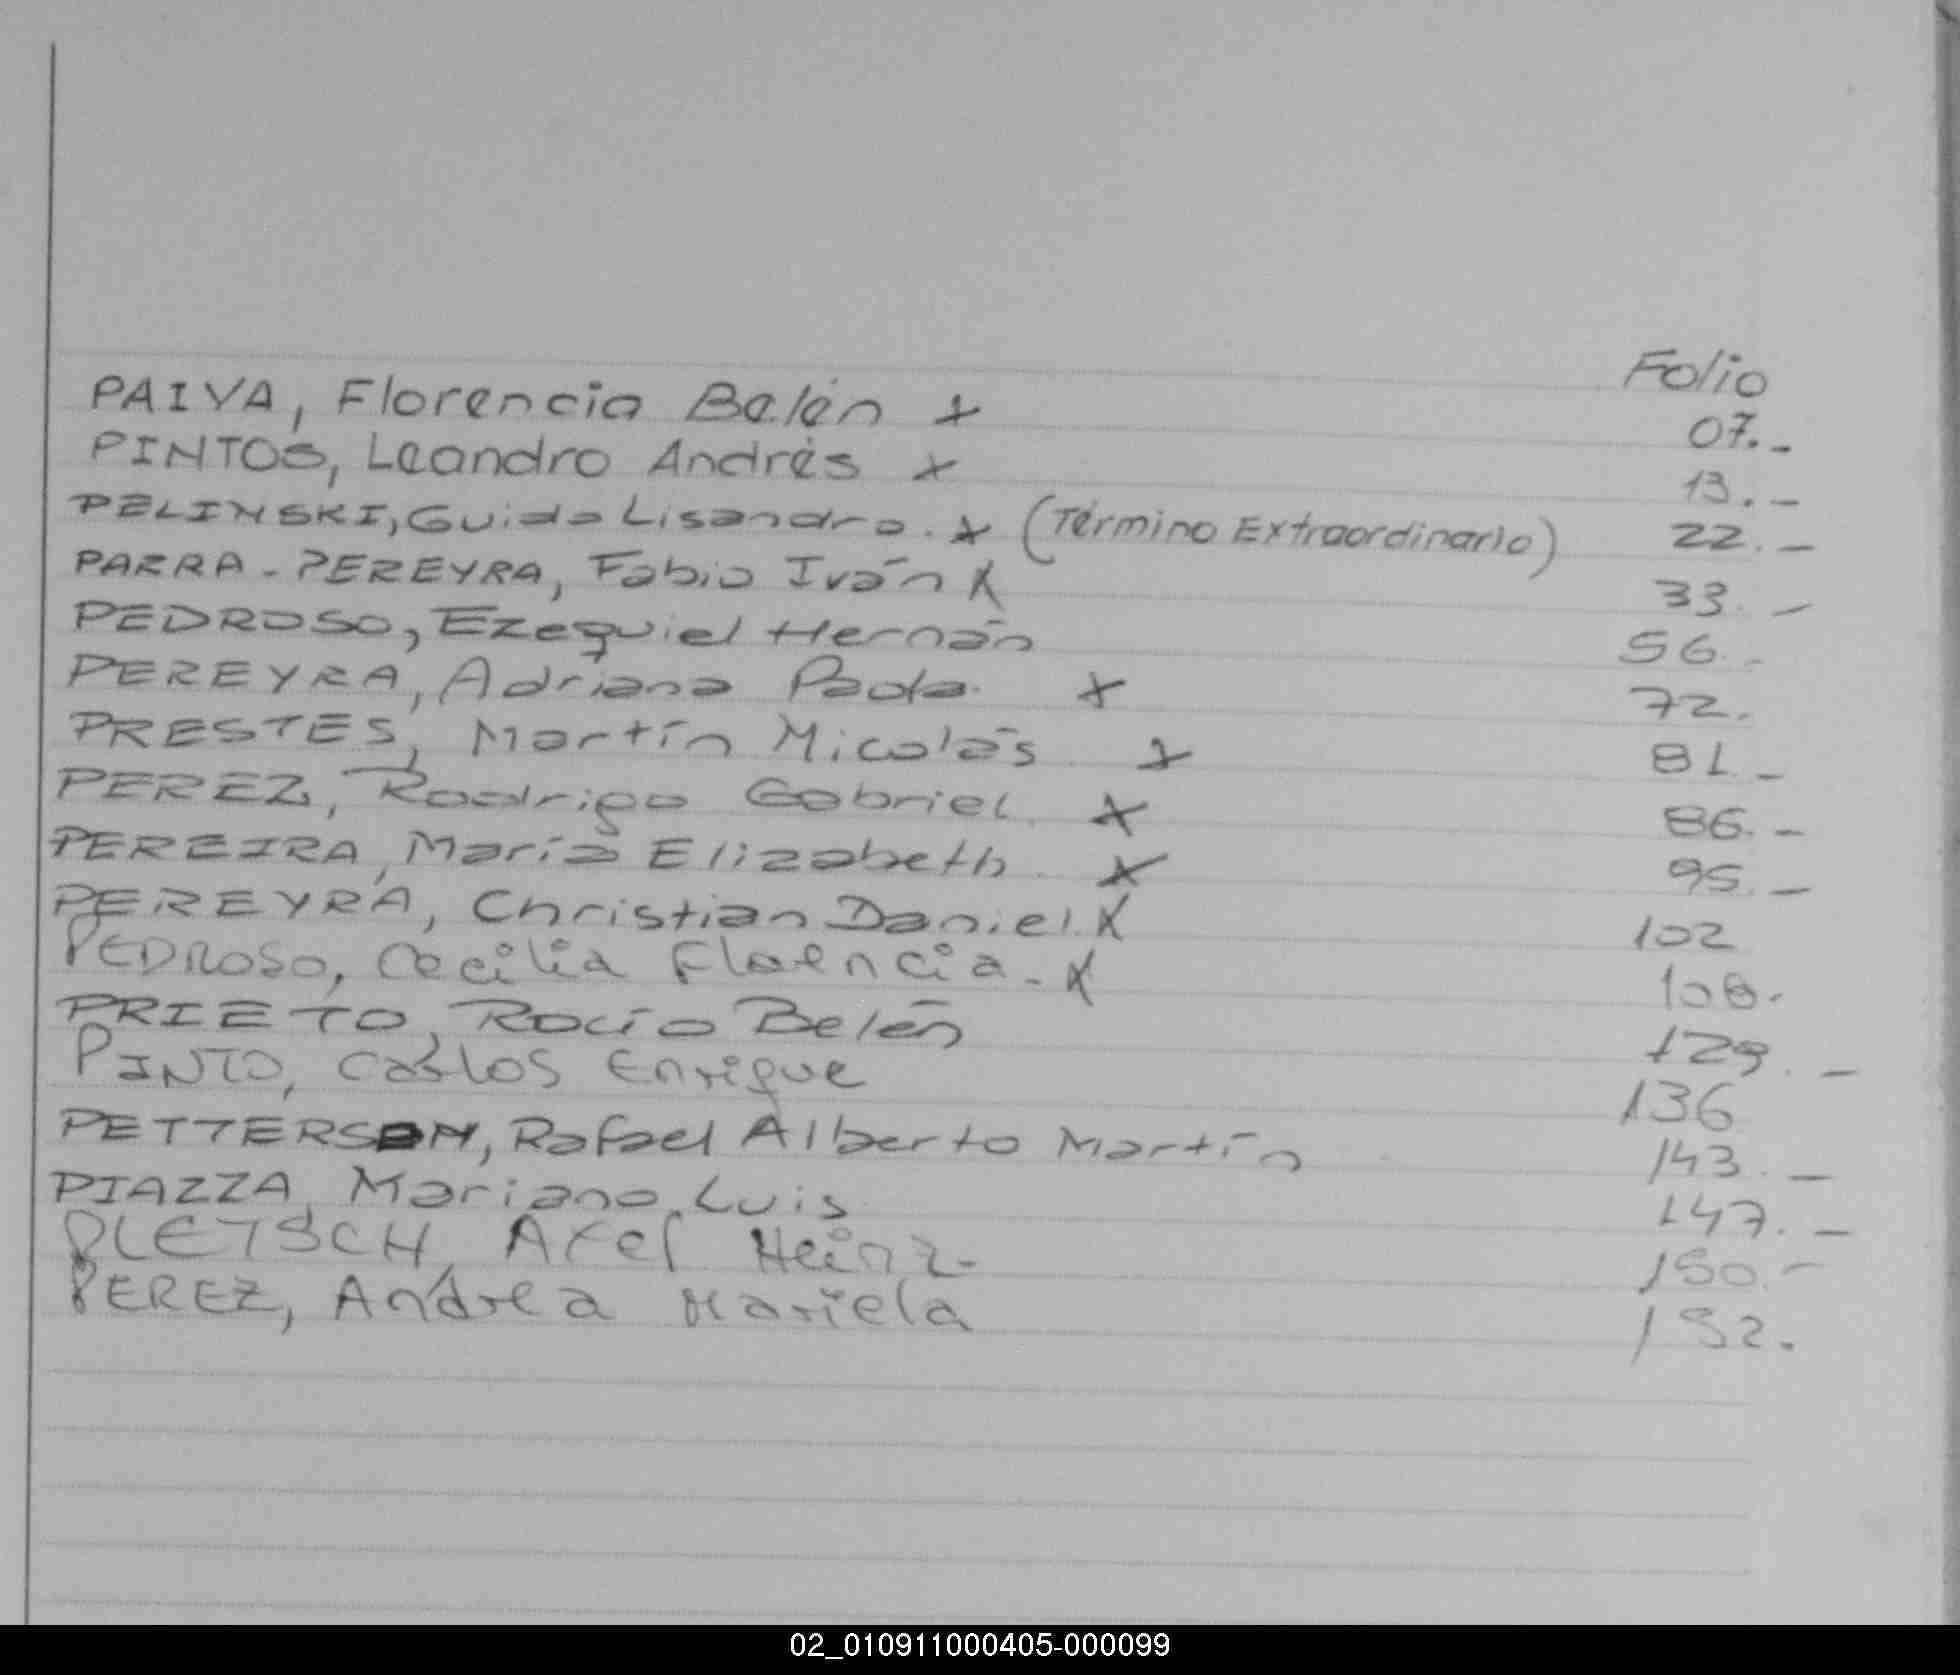 Folio
PAIVA, Florencia Belén x 07.-
PINTOS, Leandro Andrés x 13.-
PELINSKI, Guido Lisandro. x (Término Extraordinario) 22.-
PARRA-PEREYRA, Fabio Iván X 33.-
PEDROSO, Ezequiel Hernán 56.-
PEREYRA, Adriana Paola. x 72.
PRESTES, Martín Nicolás x 81.-
PEREZ, Rodrigo Gabriel. x 86.-
PEREIRA, María Elizabeth. x 95.-
PEREYRA, Christian Daniel. X 102
PEDROSO, Cecilia Floencia.- X 108.
PRIETO, Rocío Belén 129.-
PINTO, Carlos Enrique 136
PETTERSON, Rafael Alberto Martín 143.-
PIAZZA, Mariano Luis 147.-
PLETSCH, Axel Heinz- 150.-
PEREZ, Andrea Mariela 152.
02_010911000405-000099